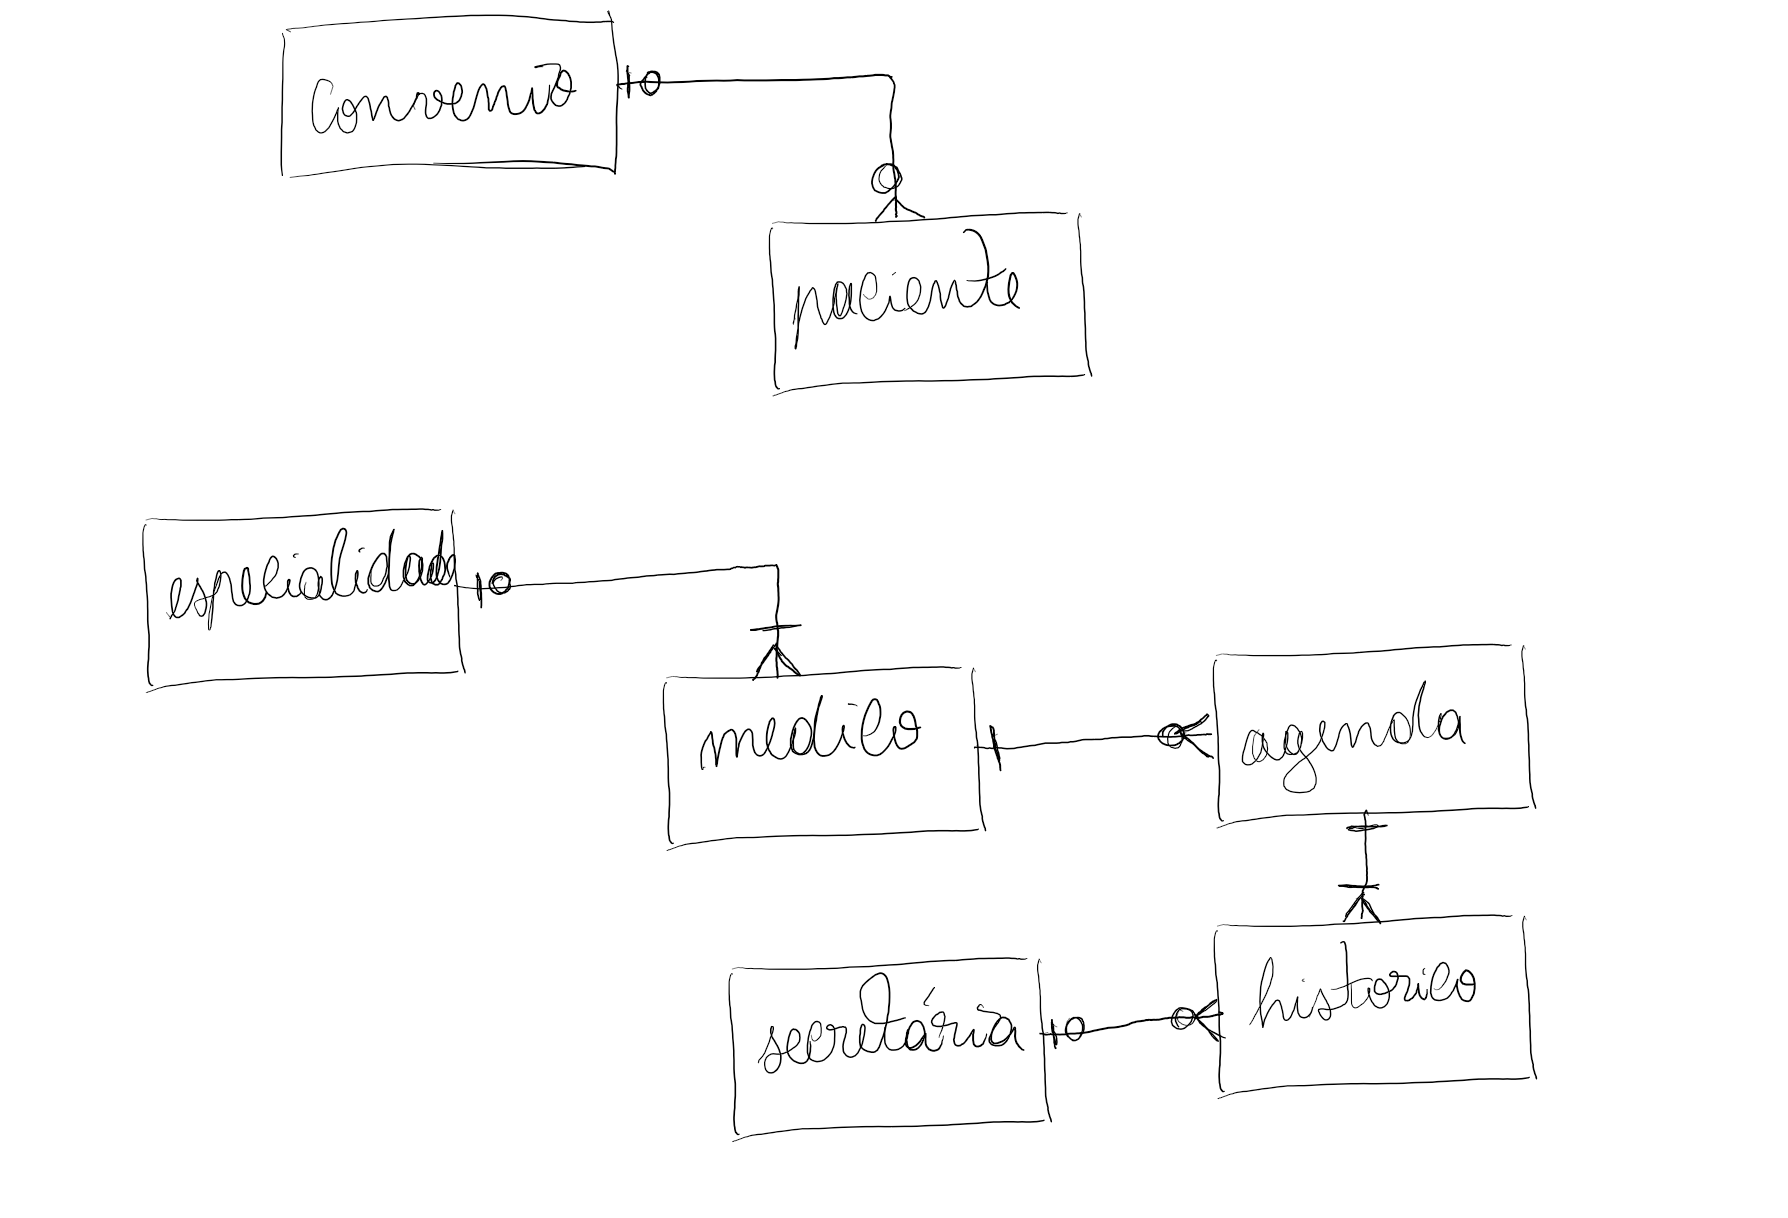 Convenio
paciente
especialidade
medico
agenda
historico
secretária